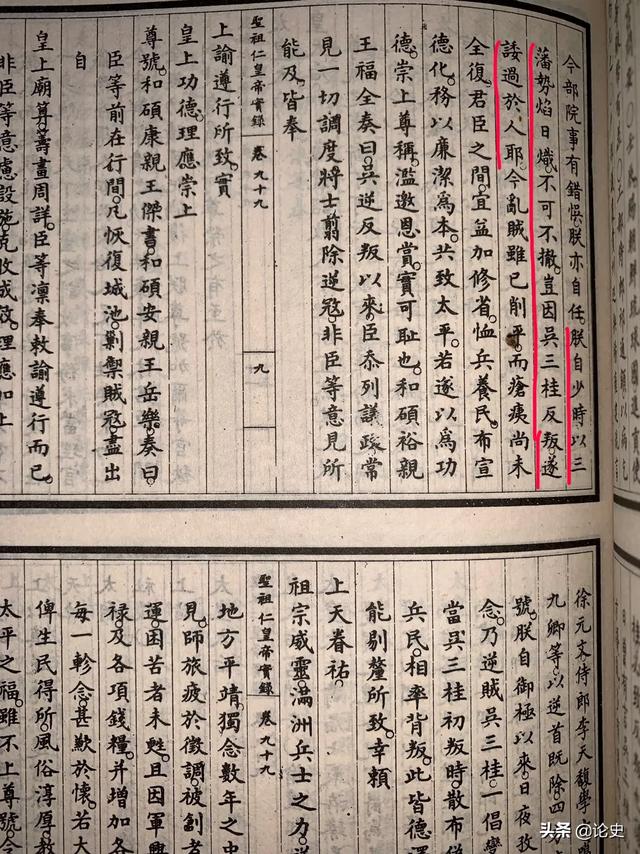 今部院事有錯悞。朕亦自任。朕自少時以三
藩勢焰日熾。不可不撤。豈因吳三桂反叛。遂
諉過於人耶。今亂賊雖已削平。而瘡痍尚未
全復。君臣之間。宜益加修省。恤兵養民。布宣
德化。務以廉潔為本。共致太平。若遂以為功
德。崇上尊稱。濫邀恩賞。實可恥也。和碩裕親
王福全奏曰。吳逆反叛以來。臣忝列議政。常
見一切調度將士。翦除逆寇。非臣等意見所
能及。皆奉
聖祖仁皇帝實錄 卷九十九 九
上諭遵行所致。實
皇上功德。理應崇上
尊號。和碩康親王傑書。和碩安親王岳樂奏曰。
臣等前在行間。凡恢復城池。剿禦賊寇。盡出
自
皇上廟算。籌畫周詳。臣等凜奉敕諭遵行而已。
非臣等意慮設施。克收成效。理應加上
徐元文侍郎李天馥學
九卿等。以逆首既除。四
號。朕自御極以來。日夜孜
念。乃逆賊吳三桂一倡變
當吳三桂初叛時。散布
兵民。相率背叛。此皆德澤
能剔釐所致。幸賴
上天眷祐。
祖宗威靈。滿洲兵士之力。逆
聖祖仁皇帝實錄 卷九十九
地方平靖。獨念數年之中
見。師旅疲於徵調。被創者
運。困苦者未甦。且因軍興
祿及各項錢糧。并增加各
每一軫念。甚歉於懷。若大
俾生民得所。風俗淳厚。教
太平之福。雖不上尊號。令
頭条 @论史